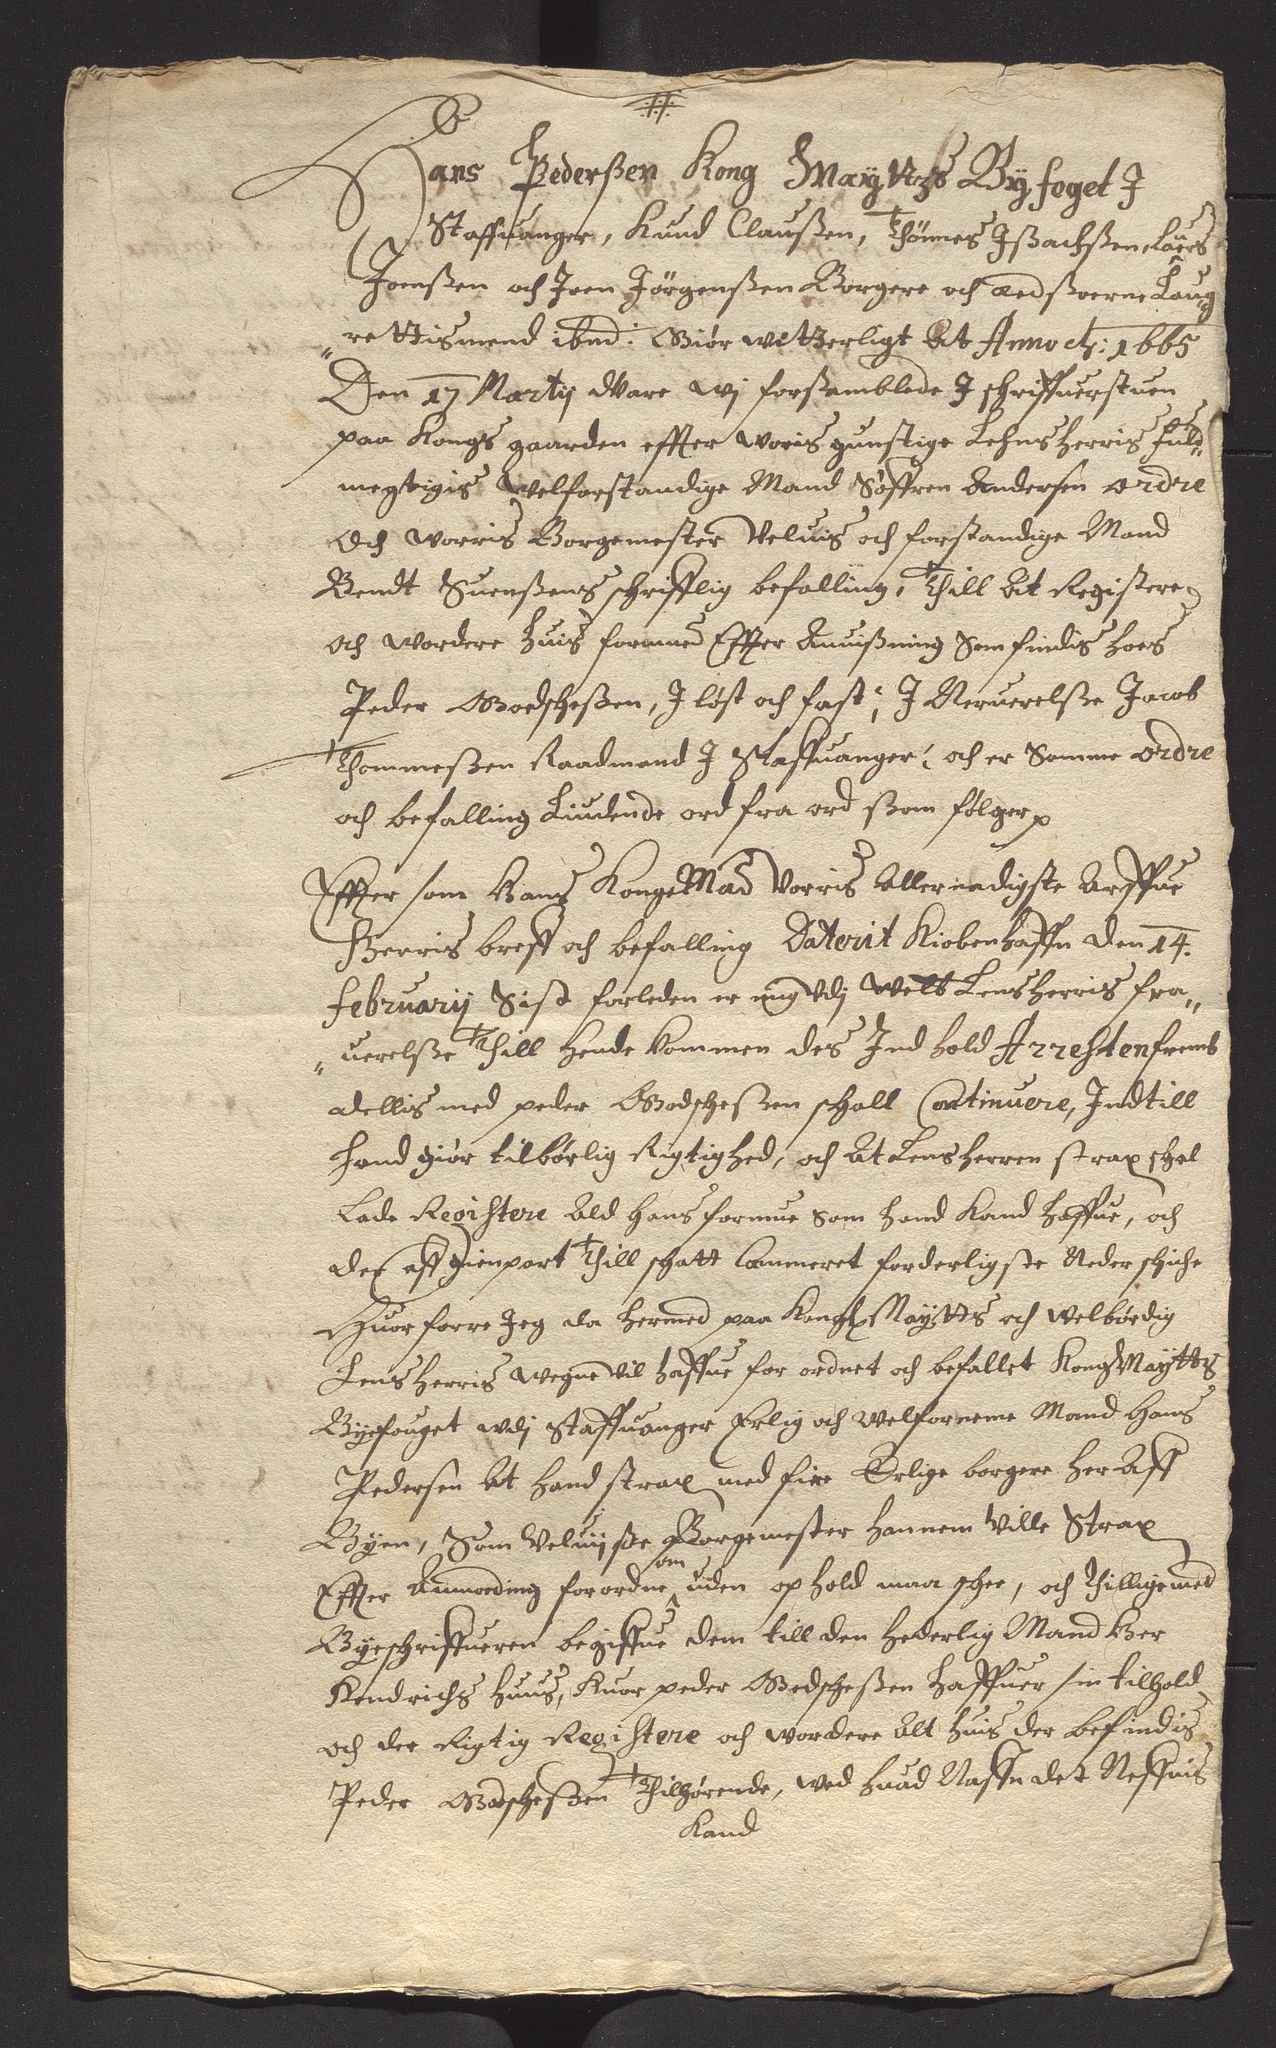 Hans Pederßen Kong Maytts Byfoget J
Staffuanger, Knud Claußen, Thönnes Jsachßen Laurs
Joenßen och Joen Jörgenßen Borgere och aedßworne Laug
rettismend ibmd: Giör witterligt At Anno etc: 1665
Den 17 Martij Ware wj forßamblede J schriffuerstuen
paa Kongs gaarden effter woris gunstige Lehnsherris Fuld
megtigis Welforstandige Mand Söffren Andersen ordre
Och worris Borgemester Veluis och forstandige Mand
Bendt Suenßens schrifftlig befalling, Thill At Registere
och wordere huis formue Effter Anuißning Som findis hoes
Peder Godscheßen, J löst och fast, J Neruerelße Jacob
Thommeßen Raadmand J Staffuanger, och er Samme ordre
och befalling Liudende ord fra ord ßom fölger
Effter som Hans Konge Maÿ Vorris Allernadigste Arffue
Herris breff och befalling Daterit Kiobenhaffn den 14.
februarij Sist forleden er mig Vdj Welb Lensherris fra
uerelße Thill hende kommen des Jndhold Arresten fremb
dellis med peder Godscheßen schall Continuere, Jndtill
hand giör tilbörlig Rigtighed, och At Lensherren strax schal
Lade Registere Ald hans formue som hand kand haffue, och
der aff gienpart Thill schatt Cammeret forderligste Neder schiche
Huorforre Jeg da hermed paa Kongl Maytts och welbördig
Lensherris wegne vil haffue for ordnet och befallet Kong Maytts
Byefouget wdj Staffuanger Erlig och Welforneme Mand Hans
Pedersen At hand strax med fire Erlige borgere her Aff
Byen, Som Veluijße Borgemester hannem Ville Strax
Effter Anmoding forordne om uden ophold maa schee, och Thillige med
Byeschriffueren begiffue dem till den hederlig Mand Her
Hendrichs Huus, huor peder Godscheßen haffuer sin tilhold
och der Rigtig Registere och wordere Alt huis der befindis
Peder Godscheßen Thilhörende, wed huad Naffn det Neffnis
Kand